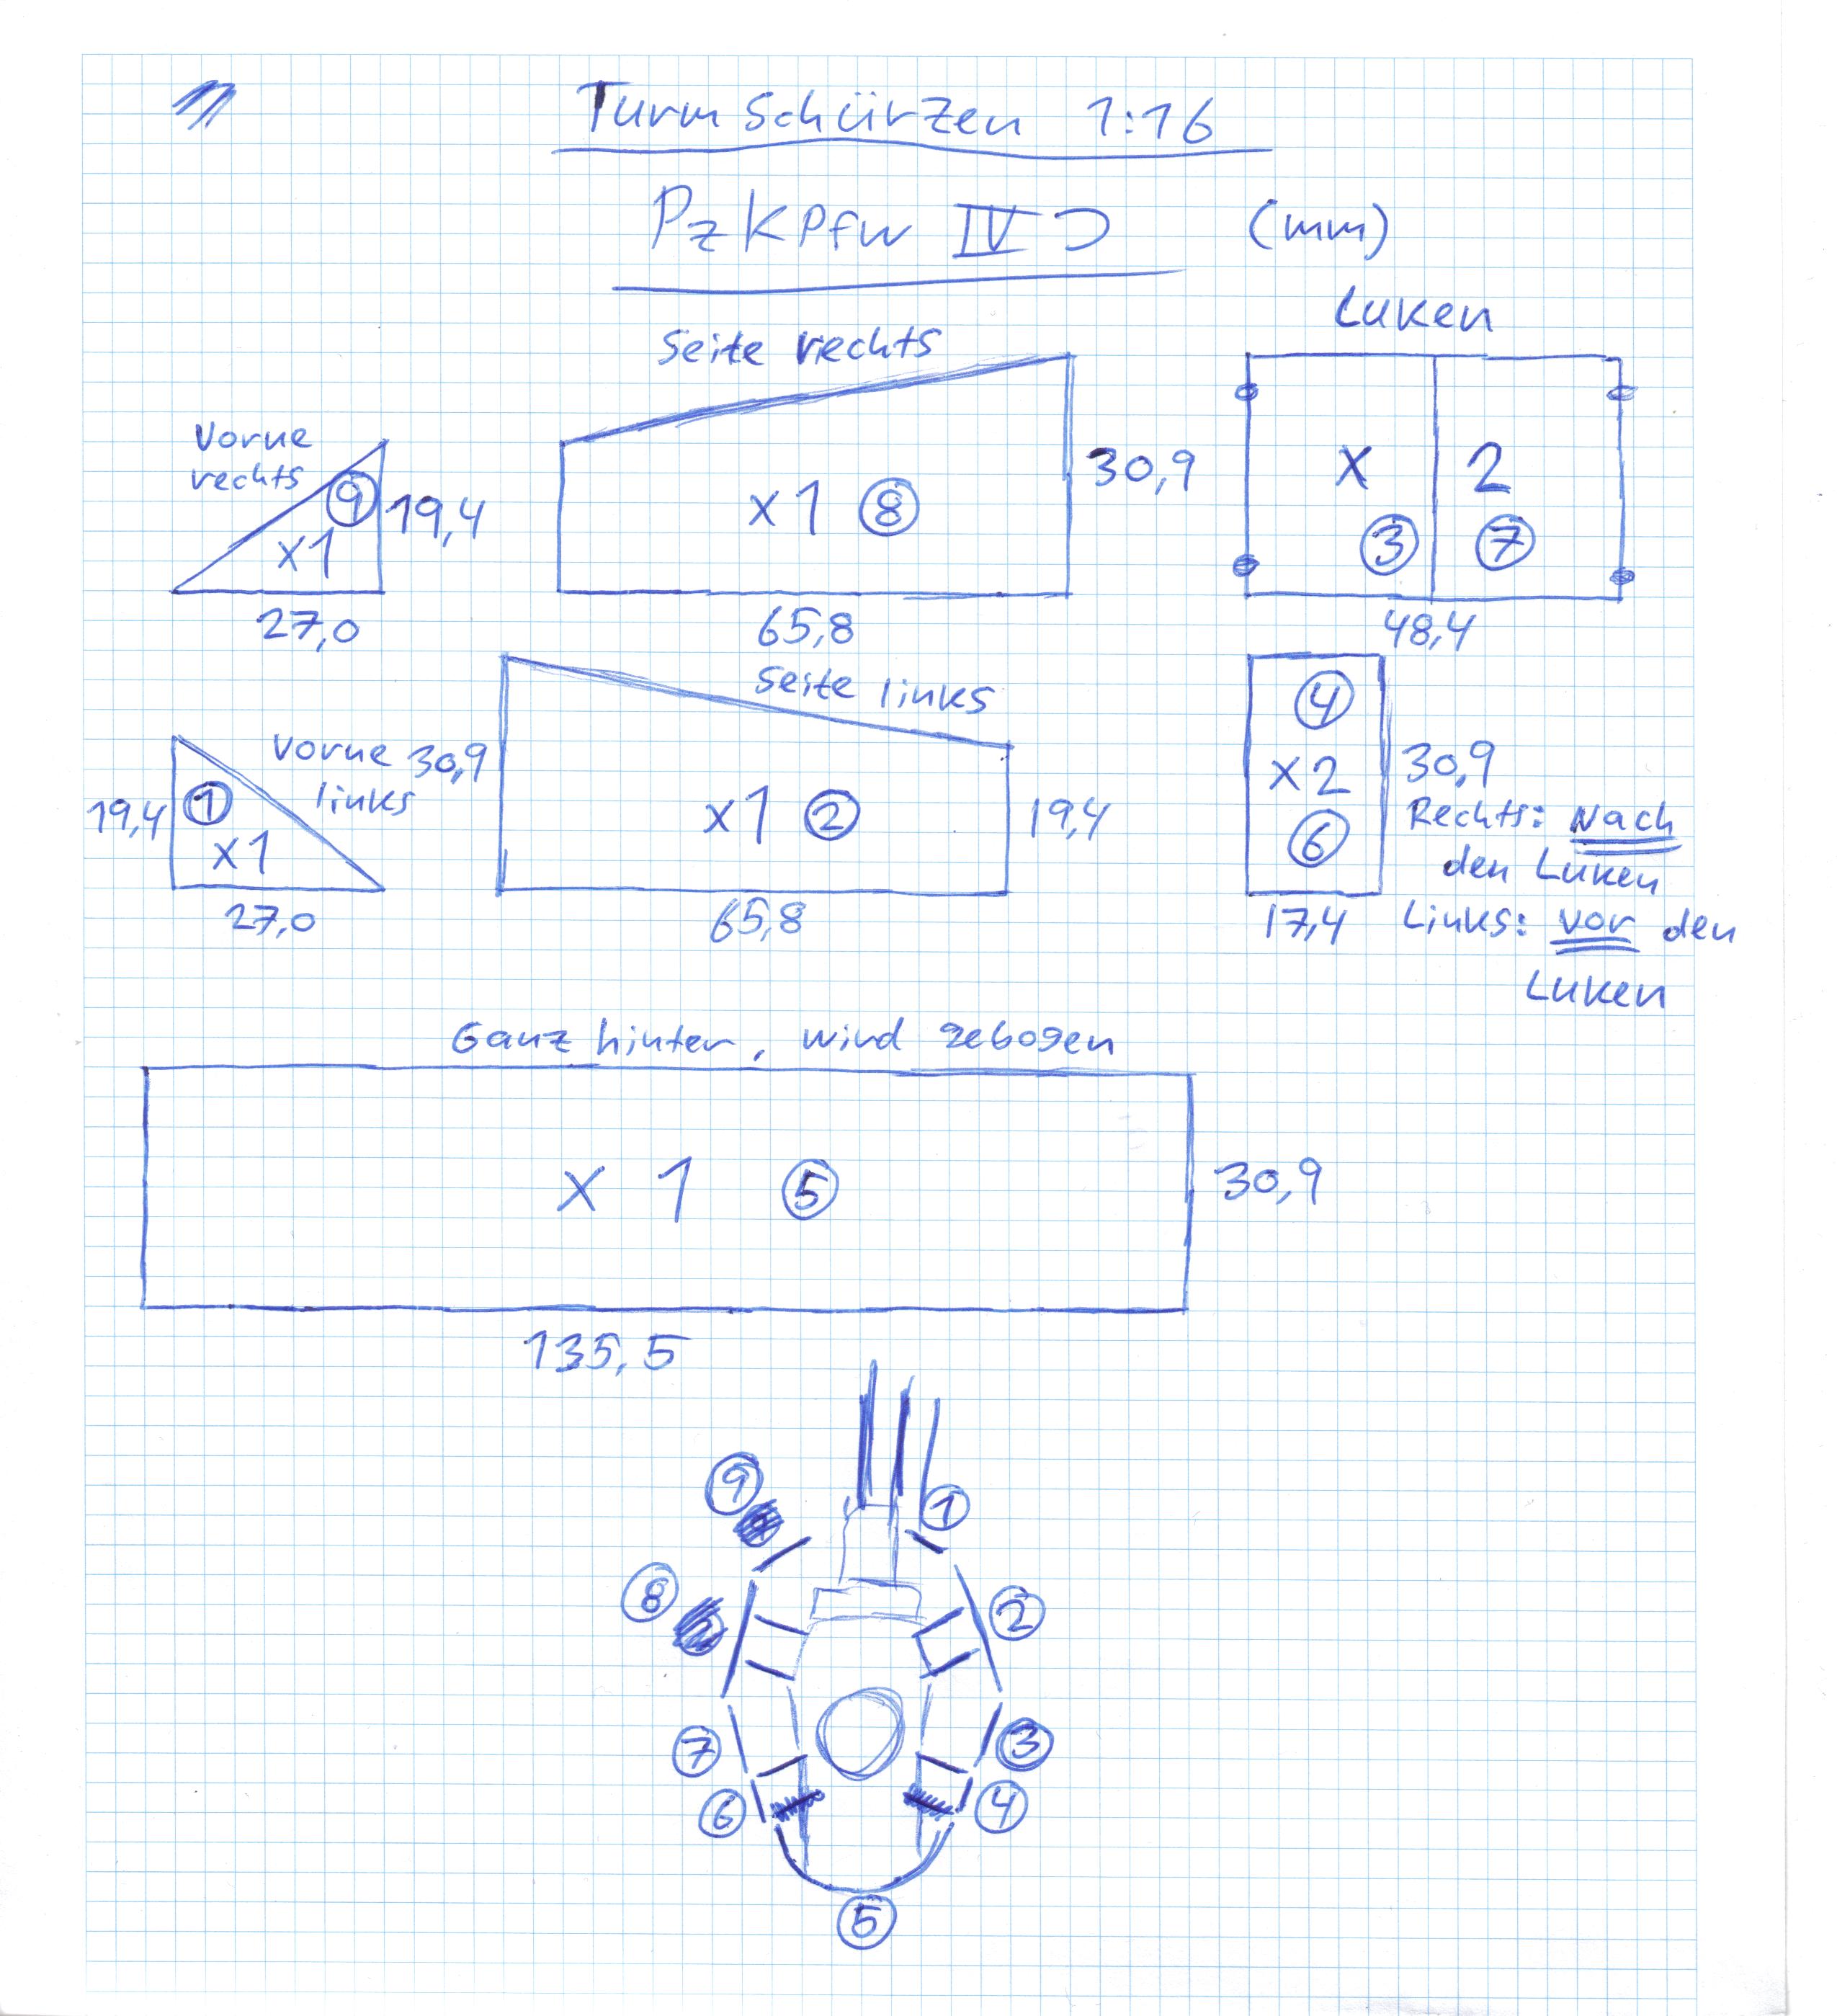 Turmschürzen 1:16
PzKpfw IV J (mm)
Luken
Seite rechts
Vorne
rechts
9
x1
19,4
27,0
x1 8
30,9
65,8
x 2
3 7
48,4
Seite links
Vorne
links
19,4
1
x1
27,0
30,9
x1 2
19,4
65,8
4
x2
6
30,9
17,4
Rechts: Nach
den Luken
Links: vor den
Luken
Ganz hinten, wird gebogen
x 1 5
30,9
135,5
9
1
8
2
7
3
6
4
5